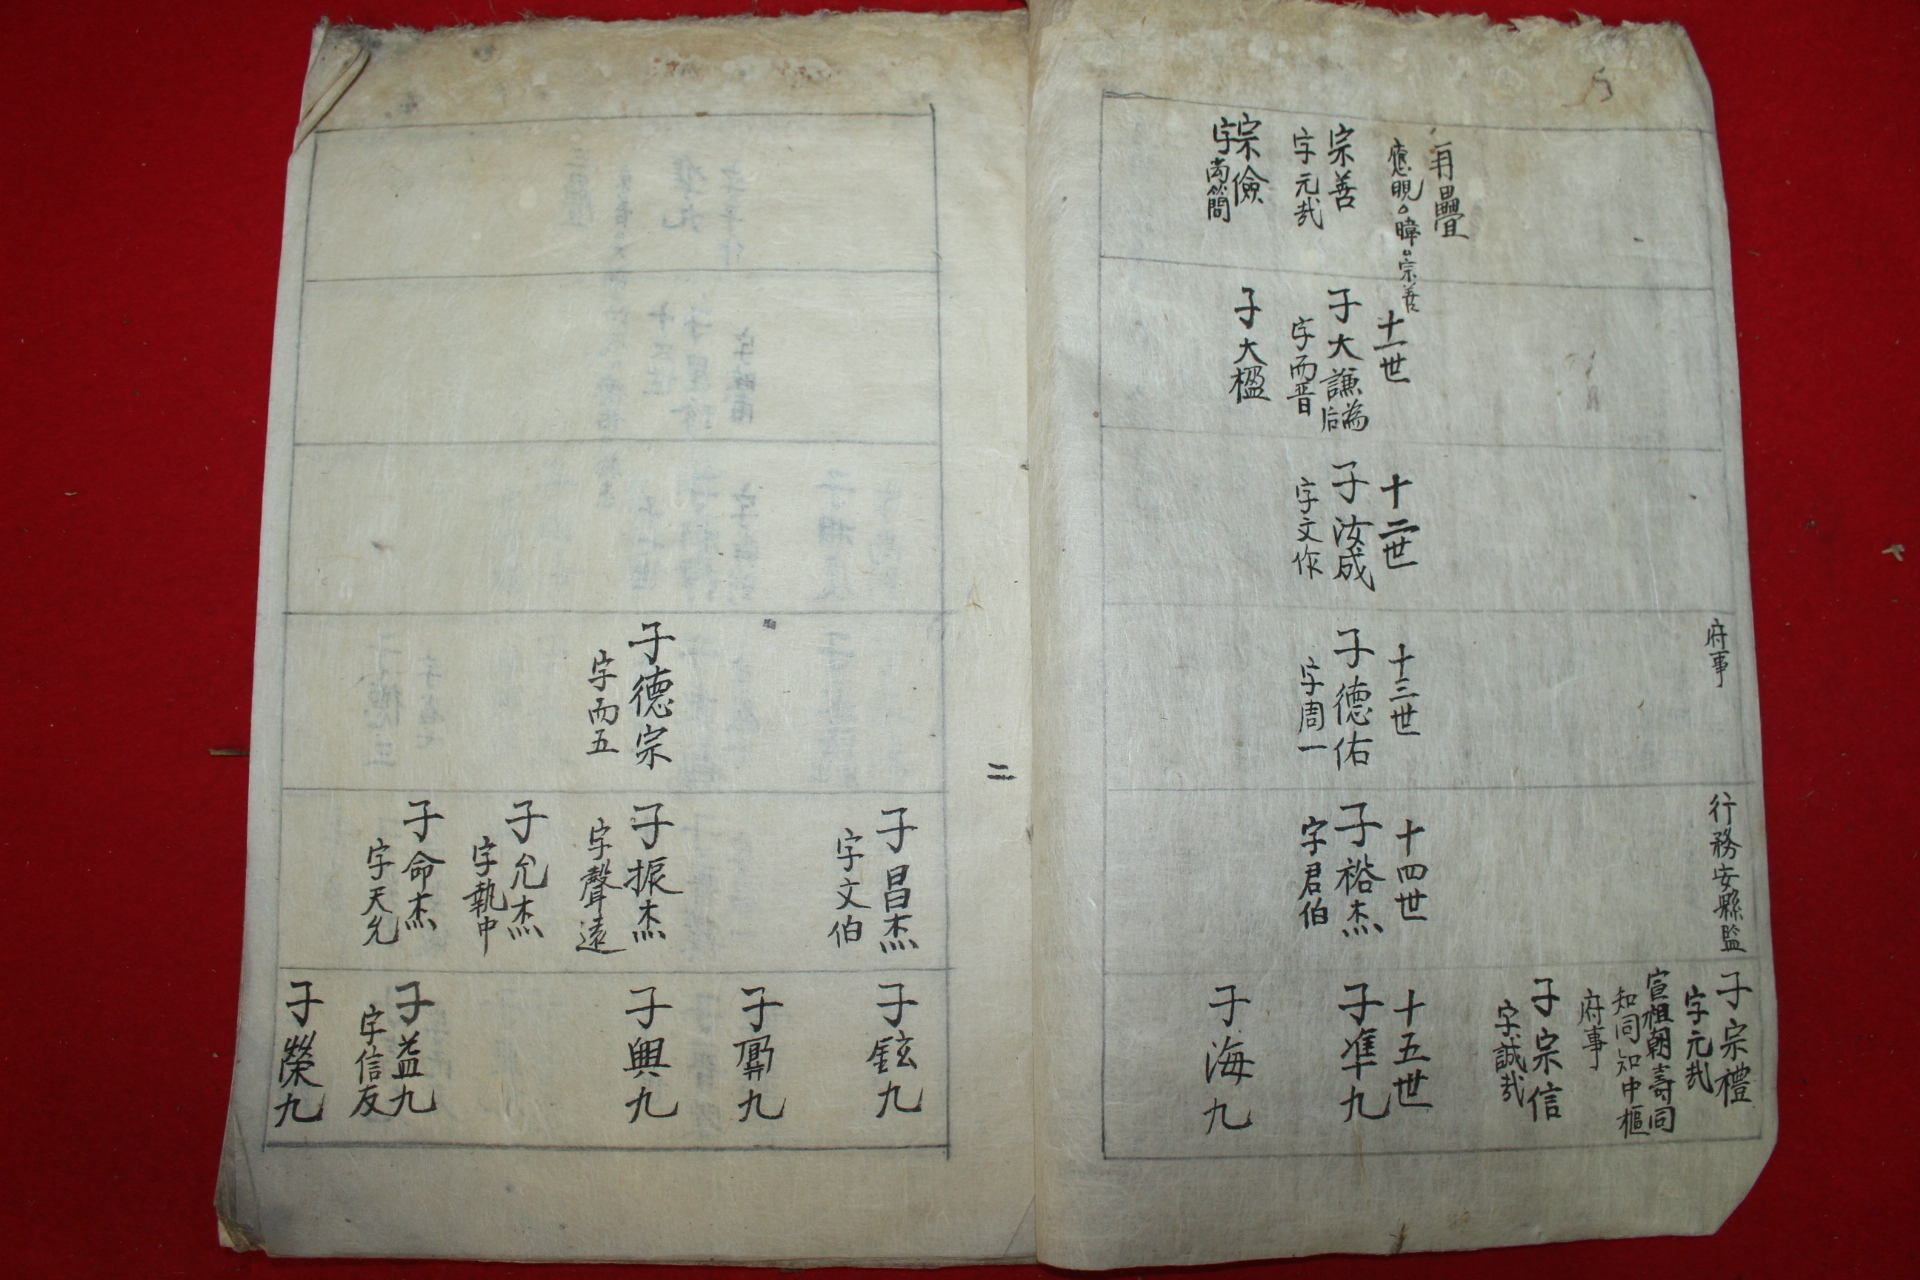 府事
行務安縣監
子宗禮
字元哉
宣祖朝壽同
知同知中樞
府事
子宗信
字誠哉
再疊
應晛
暐
宗善
宗善
字元哉
宗儉
字尚簡
十一世
子大謙為后
字而晉
子大楹
十二世
子汝成
字文作
十三世
子德佑
字周一
十四世
子裕杰
字君伯
十五世
子準九
子海九
二
子德宗
字而五
子昌杰
字文伯
子振杰
字聲遠
子允杰
字執中
子命杰
字天允
子鉉九
子興九
子益九
字信友
子榮九